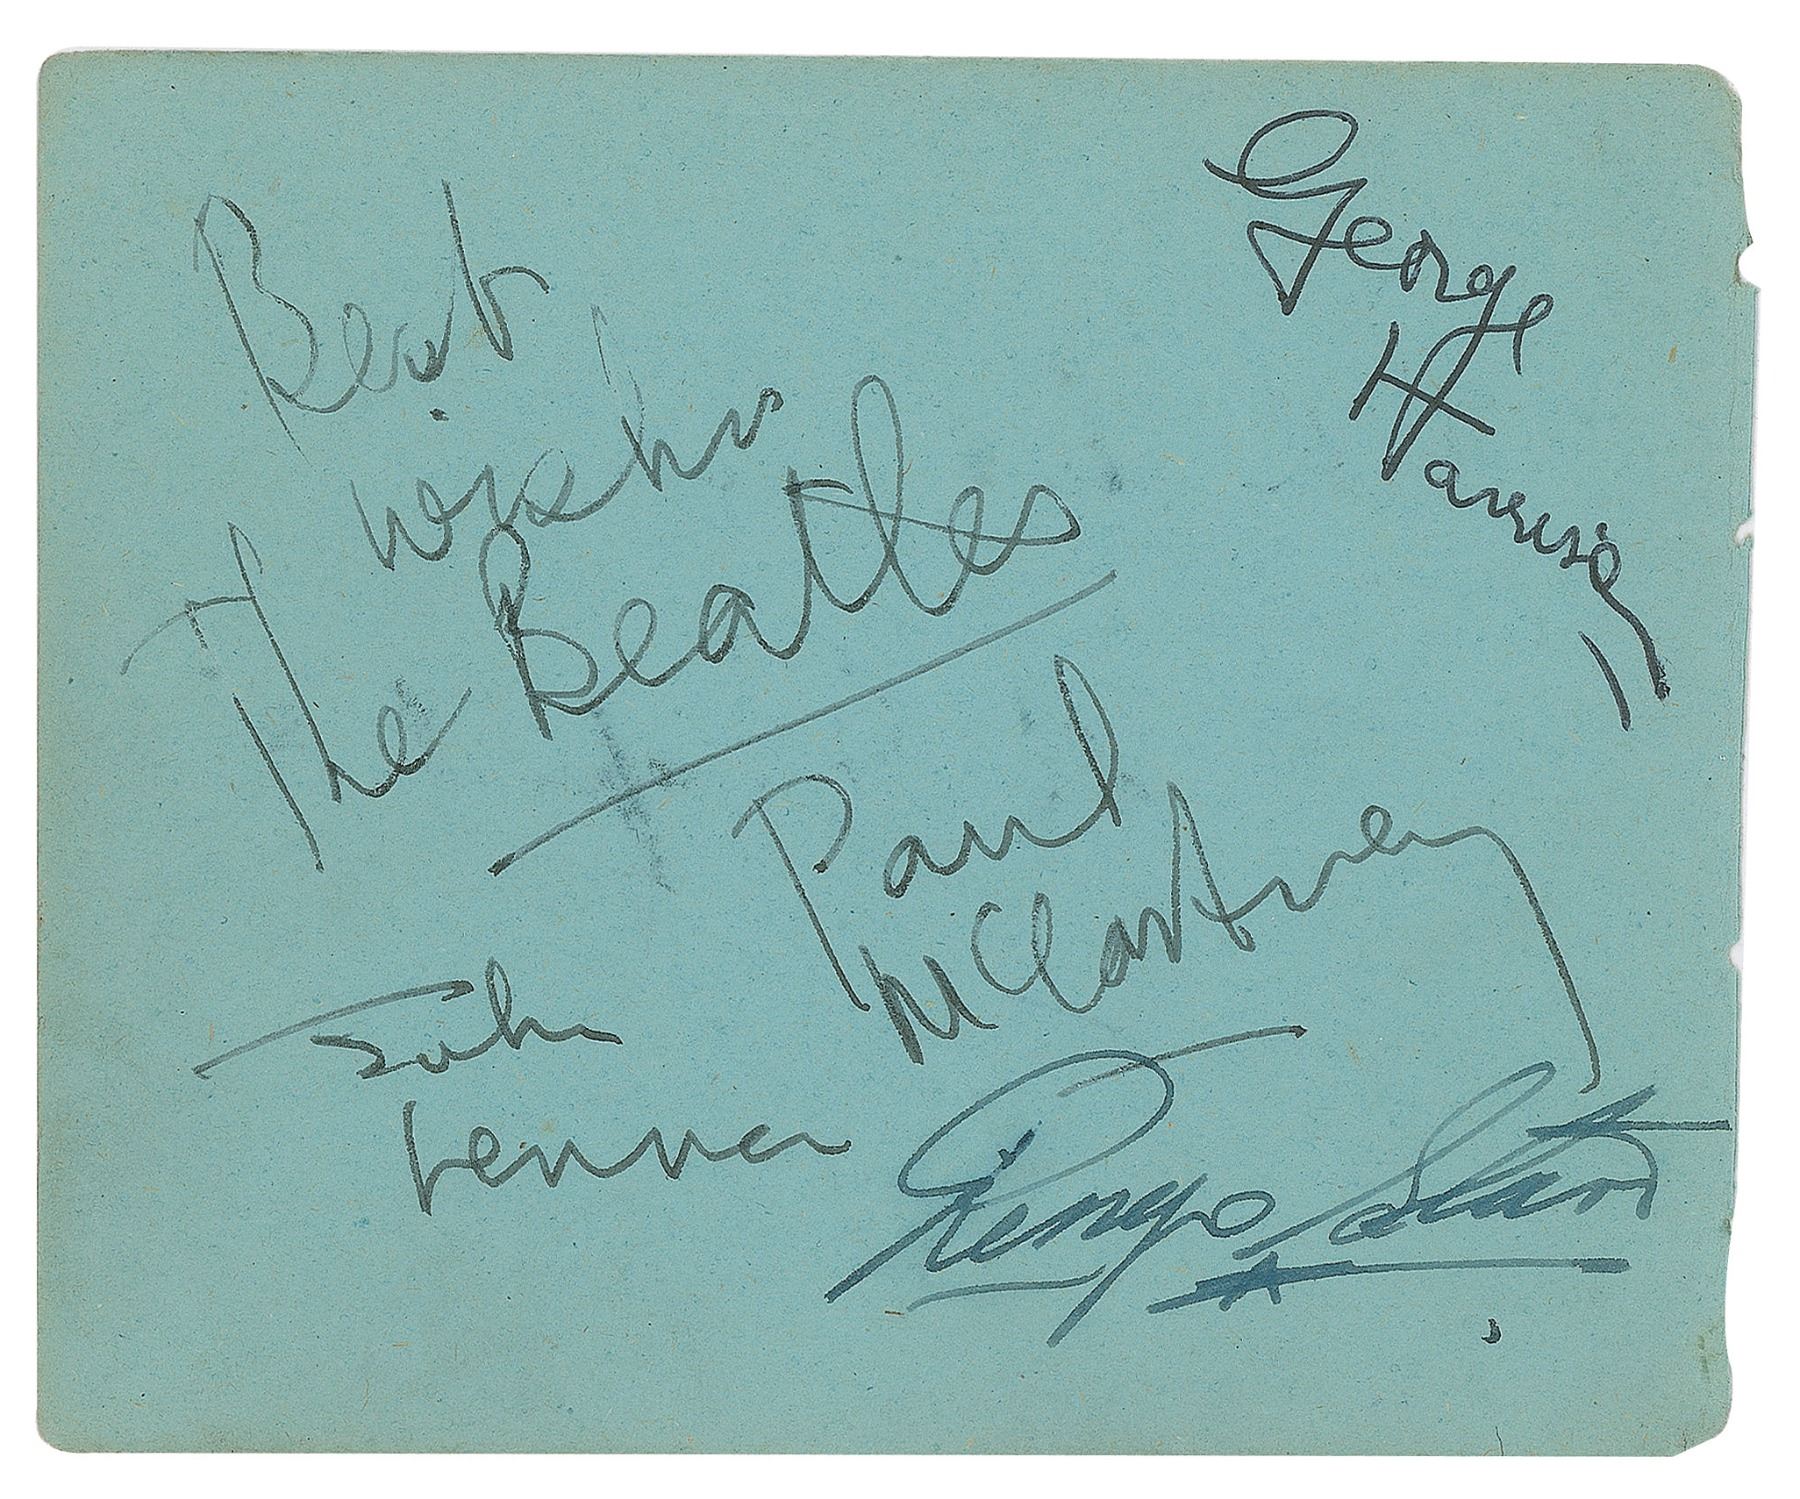 Best
wishes
The Beatles
George
Harrison
Paul
McCartney
John
Lennon
Ringo Starr